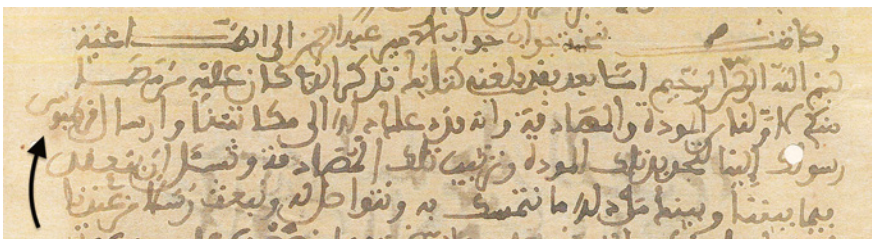 وكانت نسخة جواب جواب الامير عبد الرحمن الى الطاغية
بسم الله الرحمن الرحيم اما بعد فقد بلغنى كتابك تذكر الذى كان عليه من مضا
منكم لاولنا من المودة والمصادقة وانه قد دعاك ذلك الى مكاتبتنا وارسال قرطيوس
رسولك الينا لتجديد تلك المودة وتثبيت تلك المصادقة وتسئل ان تنعقد
فيما بيننا وبينك من ذلك ما نتمسك به ونتواصل له ونبعث رسلا من عندنا